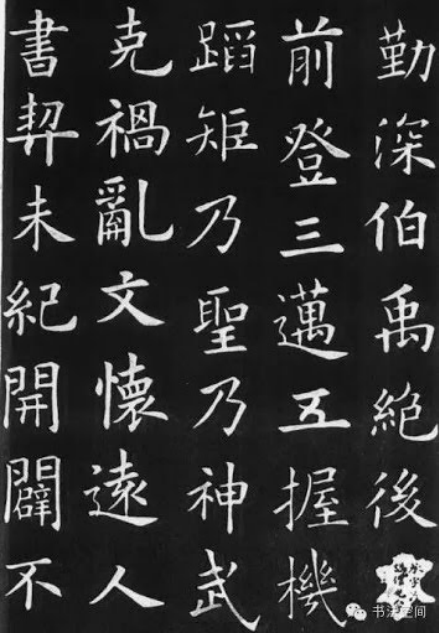 勤深伯禹絶後
前登三邁五握機
蹈矩乃聖乃神武
克禍亂文懷遠人
書契未紀開闢不
书法空间